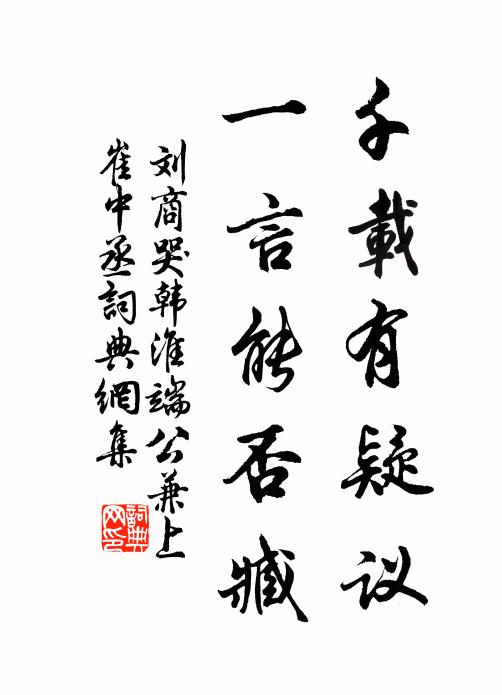 千載有疑议
一言能否臧
刘商哭韩淮端公兼上
崔中丞詞典網集
詞典网印